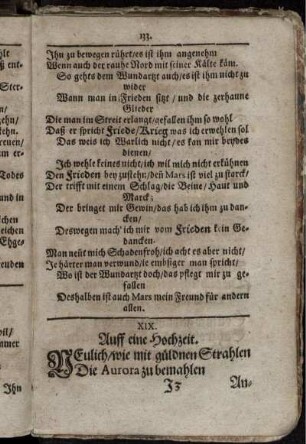 133.
Ihn zu bewegen rühret/es ist ihm angenehm
Wenn auch der rauhe Nord mit seiner Kälte käm.
So gehts dem Wundartzt auch/es ist ihm nicht zu
wider
Wann man in Frieden sitzt/ und die zerhaune
Glieder
Die man im Streit erlangt/gefallen ihm so wohl
Daß er spricht Friede/Krieg was ich erwehlen sol
Das weis ich Warlich nicht/es kan mir beydes
dienen/
Ich wehle keines nicht/ich wil mich nicht erkühnen
Den Frieden bey zustehn/deñ Mars ist viel zu starck/
Der trifft mit einem Schlag/die Beine/Haut und
Marck;
Der bringet mir Gewin/das hab ich ihm zu dan-
cken/
Deswegen mach' ich mir vom Frieden kein Ge-
dancken.
Man neñt mich Schadenfroh/ich acht es aber nicht/
Je härter man verwund/je embsiger man spricht/
Wo ist der Wundartzt doch/das pflegt mir zu ge-
fallen
Deshalben ist auch Mars mein Freund für andern
allen.
XIX.
Auff eine Hochzeit.
NEulich/wie mit güldnen Strahlen
Die Aurora zu bemahlen
J3
An-
Ihn